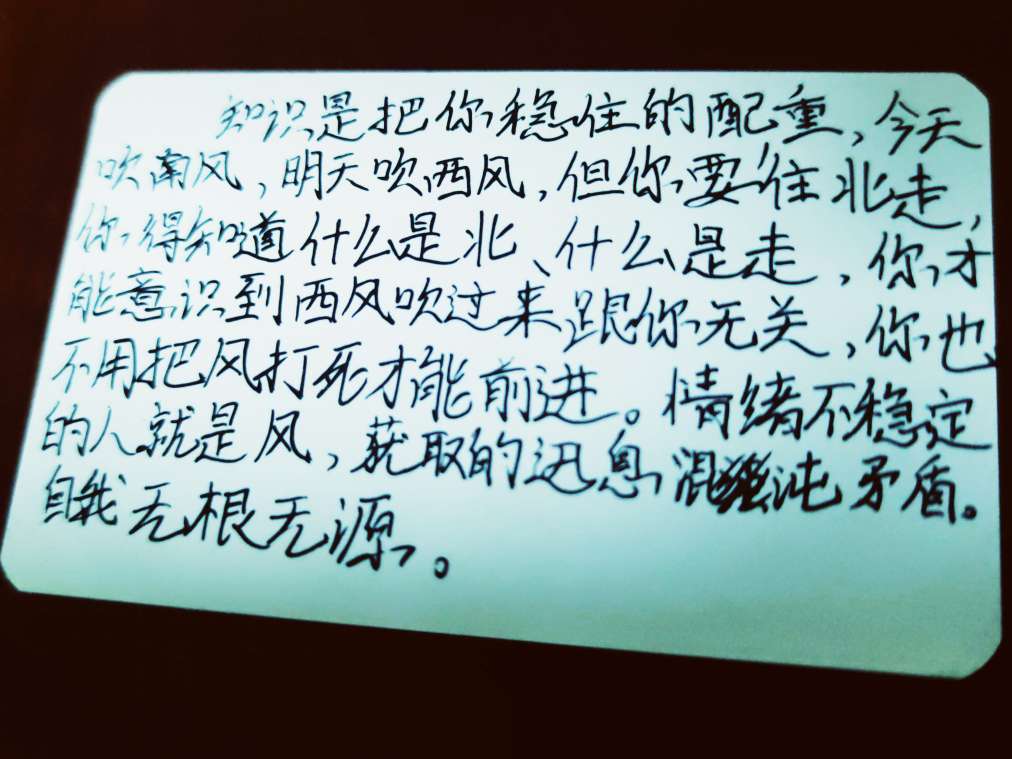 知识是把你稳住的配重，今天
吹南风，明天吹西风，但你要往北走，
你得知道什么是北、什么是走，你才
能意识到西风吹过来跟你无关，你也
不用把风打死才能前进。情绪不稳定
的人就是风，获取的讯息混沌矛盾。
自我无根无源。